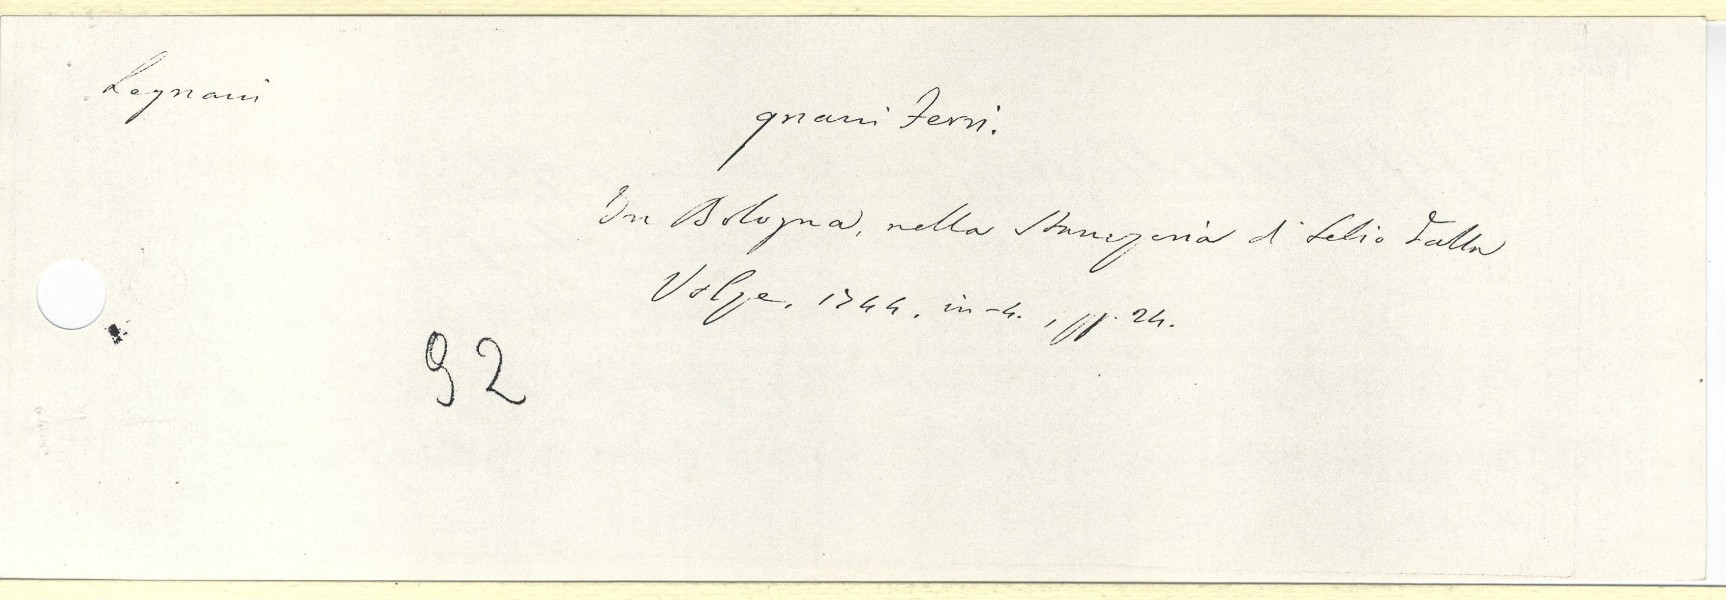 Legnani
gnani Ferri.
In Bologna, nella Stamperia di Lelio Dalla
Volpe, 1744, in-4., pp. 24.
92